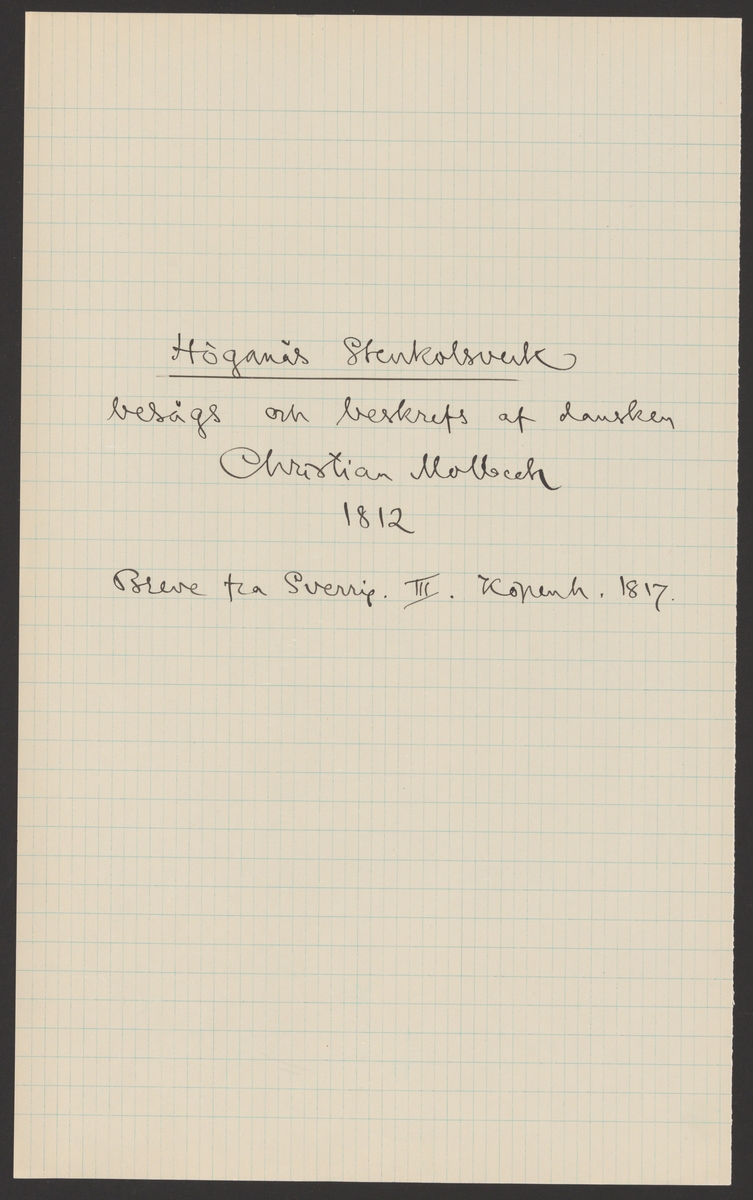 Höganäs Stenkolsverk
besågs och beskrefs af dansken
Christian Molbech
1812
Breve fra Sverrig. III. Köpenh. 1817.